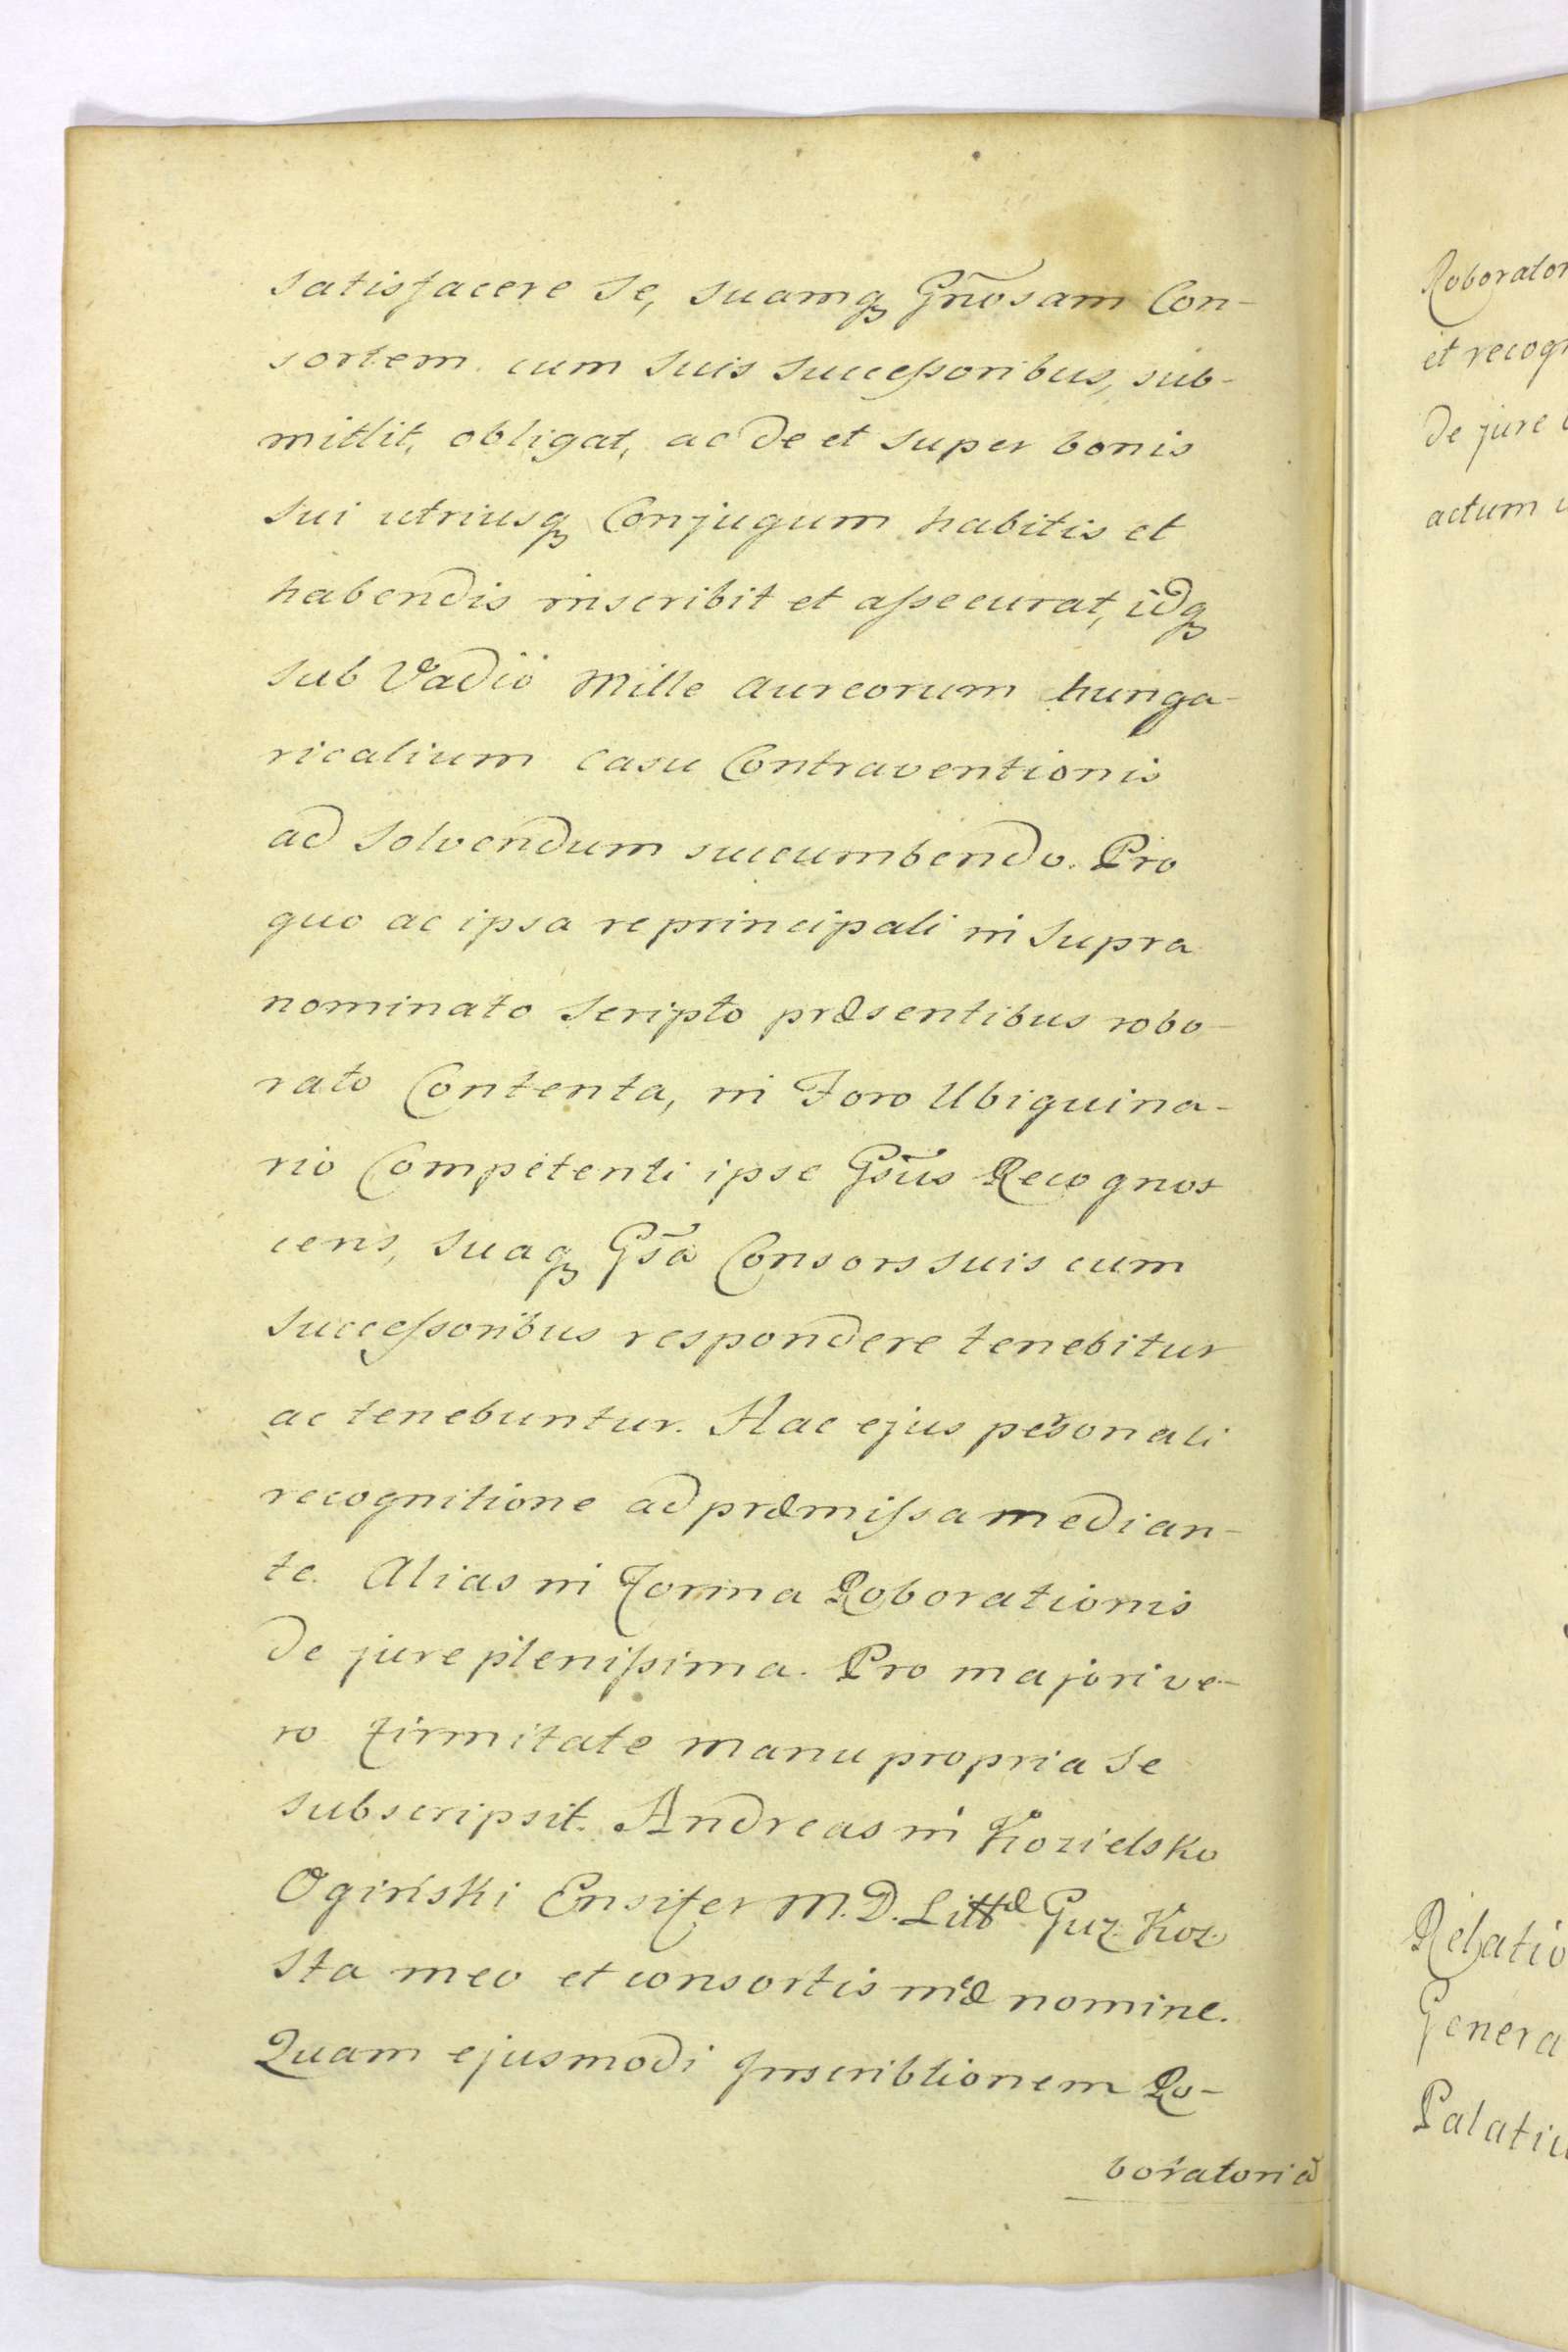 satisfacere se, suamq₃ Gnõsam Con-
sortem cum suis successoribus, sub-
mittit, obligat, ac de et super bonis
sui utriusq₃ Conjugum habitis et
habendis inscribit et assecurat, idq₃
sub Vadio Mille aureorum hunga-
ricalium casu Contraventionis
ad solvendum succumbendo. Pro
quo ac ipsa re principali in supra
nominato scripto præsentibus robo-
rato Contenta, in Foro Ubiquina-
rio Competenti ipse Gsũs Recognos
cens, suaq₃ Gsã Consors suis cum
successoribus respondere tenebitur
ac tenebuntur. Hac ejus personali
recognitione ad præmissa median-
te. Alias in Forma Roborationis
de jure plenissima. Pro majori ve-
ro firmitate manu propria se
subscripsit. Andreas in Kozielsko
Ogiński Ensifer M. D. Littæ Guz. Koz.
Sta meo et consortis meæ nomine.
Quam ejusmodi Inscribtionem Ro-
boratoriã
Roborator
et recogn
de jure
actum
Relatio
Genera
Palatiu